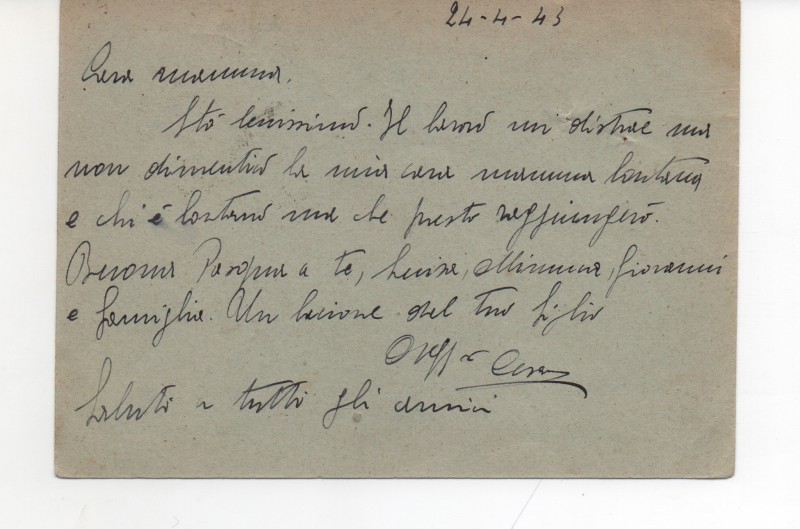 24-4-43
Cara mamma,
Sto benissimo. Il lavoro mi distrae ma
non dimentico la mia cara mamma lontana
e chi è lontano ma che presto raggiungerò.
Buona Pasqua a te, Luisa, Mimma, Giovanni
e famiglia. Un bacione dal tuo figlio
Saluti a tutti gli amici